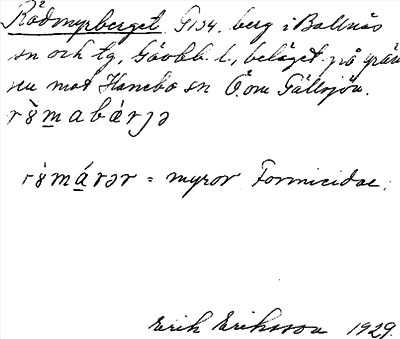 Rödmyrberget G134. berg i Bollnäs
sn och tg, Gävlb. l., beläget på grän
sen mot Hanebo sn Ö. om Gällsjön.
rö̀mabárjə
rö̀márər = myror Formicidae.
Erik Eriksson 1929.